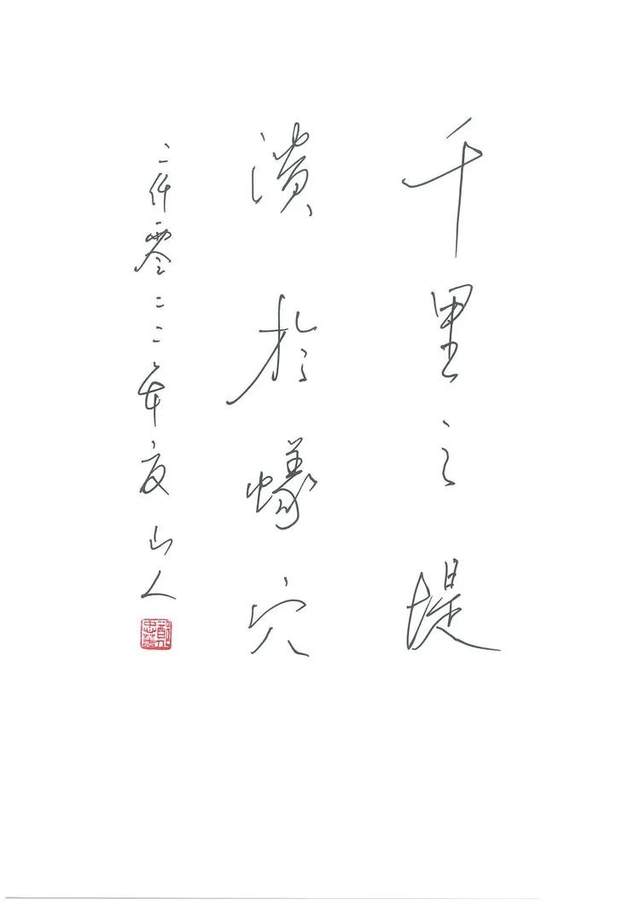 千里之堤
潰於蟻穴
二仟零二二年夏山人